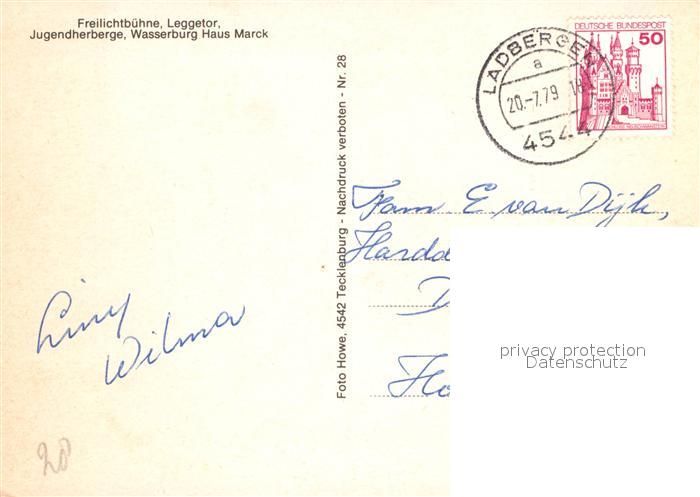 Freilichtbühne, Leggetor,
Jugendherberge, Wasserburg Haus Marck
DEUTSCHE BUNDESPOST
50
LADBERGEN
a
20.-7.79 18
4544
Foto Howe, 4542 Tecklenburg - Nachdruck verboten - Nr. 28
Fam E van Dijk,
Hardd
D
Ho
Liny
Wilma
privacy protection
Datenschutz
20